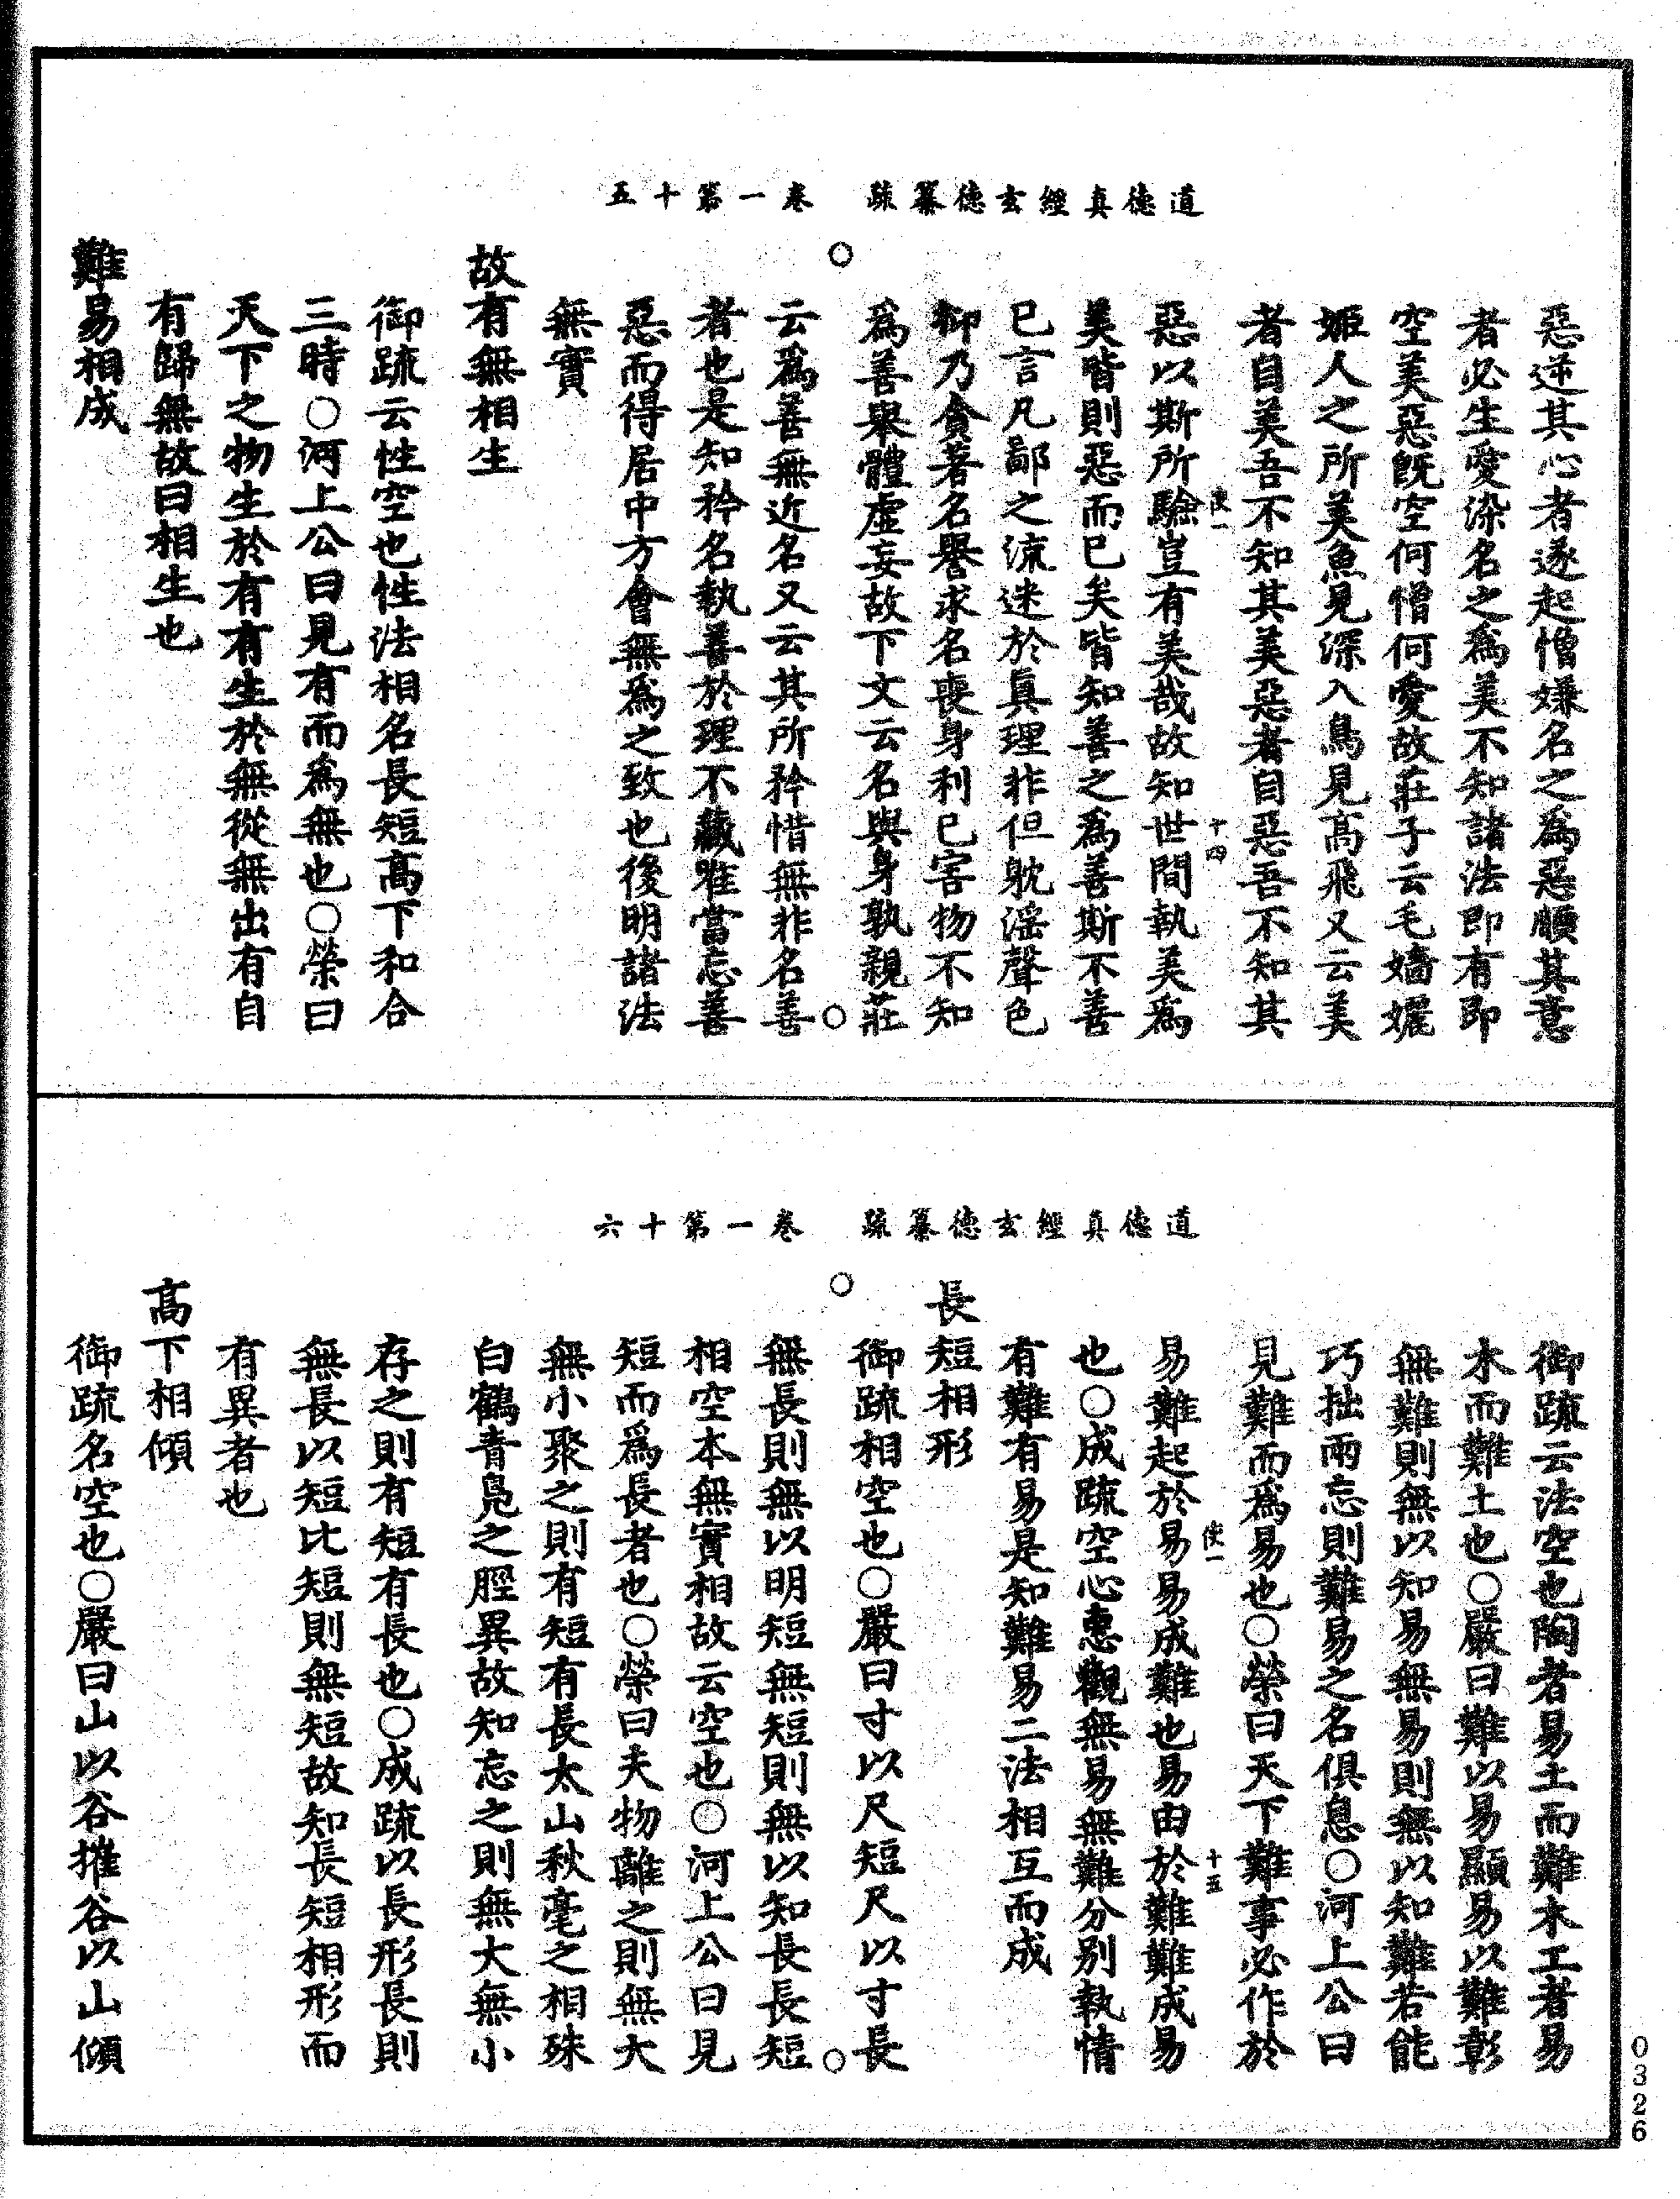 道德真經玄德纂疏　卷一第十五
惡逆其心者遂起憎嫌名之為惡順其意
者必生愛染名之為美不知諸法即有即
空美惡旣空何憎何愛故莊子云毛嬙孋
姬人之所美魚見深入鳥見高飛又云美
者自美吾不知其美惡者自惡吾不知其
使一　十四
惡以斯所驗豈有美哉故知世間執美爲
美皆則惡而已矣皆知善之爲善斯不善
已言凡鄙之流迷於眞理非但躭滛聲色
抑乃貪著名譽求名喪身利已害物不知
爲善舉體虛妄故下文云名與身孰親莊
○　○
云爲善無近名又云其所矜惜無非名善
者也是知矜名執善於理不藏唯當忘善
惡而得居中方會無爲之致也後明諸法
無實
故有無相生
御疏云性空也性法相名長短高下和合
三時○河上公曰見有而爲無也○榮曰
天下之物生於有有生於無從無出有自
有歸無故曰相生也
難易相成
道德真經玄德纂疏　卷一第十六
御疏云法空也陶者易土而難木工者易
木而難土也○嚴曰難以易顯易以難彰
無難則無以知易無易則無以知難若能
巧拙兩忘則難易之名俱息○河上公曰
見難而爲易也○榮曰天下難事必作於
使一　十五
易難起於易易成難也易由於難難成易
也○成疏空心惠觀無易無難分別執情
有難有易是知難易二法相互而成
長短相形
御疏相空也○嚴曰寸以尺短尺以寸長
○　○
無長則無以明短無短則無以知長長短
相空本無實相故云空也○河上公曰見
短而爲長者也○榮曰夫物離之則無大
無小聚之則有短有長太山秋毫之相殊
白鶴青鳧之脛異故知忘之則無大無小
存之則有短有長也○成疏以長形長則
無長以短比短則無短故知長短相形而
有異者也
高下相傾
御疏名空也○嚴曰山以谷摧谷以山傾
0326